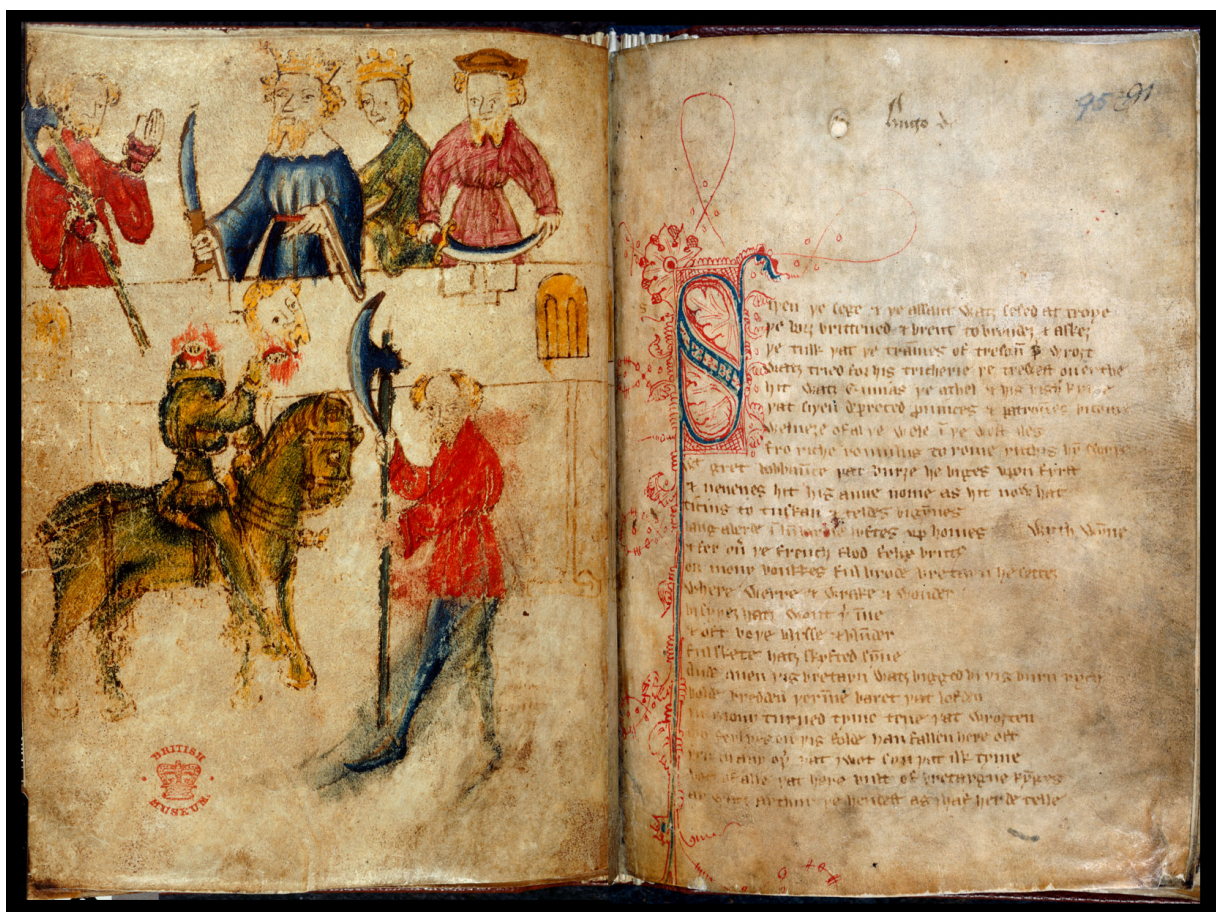 95 91
Hugo de
Siþen þe sege & þe assaut watz sesed at troye
þe borȝ brittened & brent to brondeȝ & askez
þe tulk þat þe tra̅mes of treson̅ þ̉ wroȝt
watz tried for his tricherie þe trewest on erthe
hit watz Ennias þe athel & his highe kynde
þat siþen depreced prouinces & patrounes bicome
welneȝe of al þe wele i̅ þe west iles
fro riche romulus to rome ricchis hy̅ swyþe
gret bobbau̅ce þat burȝe he biges vpon fyrst
& neuenes hit his aune nome as hit now hat
ticius to tuskan & teldes bigy̅nes
langaberde lyftes vp homes wyth wy̅ne
& fer oủ þe french flod felix brutus
on mony bonkkes ful brode bretayn he settez
where werre & wrake & wonder
bi syþez hatz wont þ̉ i̅ne
& oft boþe blysse & blunder
ful skete hatz skyfted sy̅ne
Ande quen þis bretayn watz bigged bi þis burn rych
bolde bredden þeri̅ne baret þat lofden
in mony turned tyme tene þat wroȝten
mo ferlyes on þis folde han fallen here oft
þen in any oþ̉ þat I wot syn þat ilk tyme
bot of alle þat here bult of bretaygne kynges
ay watz arthur þe hendest as I haf herde telle
BRITISH
MUSEUM